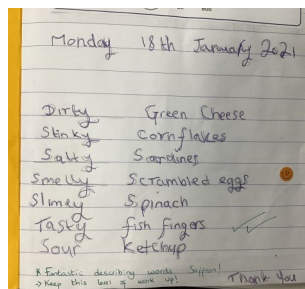 Monday 18th January 2021
Dirty Green Cheese
Stinky Cornflakes
Salty Sardines
Smelly Scrambled eggs
Slimey Spinach
Tasty fish fingers
Sour Ketchup
Fantastic describing words Saffron!
→ Keep this level of work up! Thank you